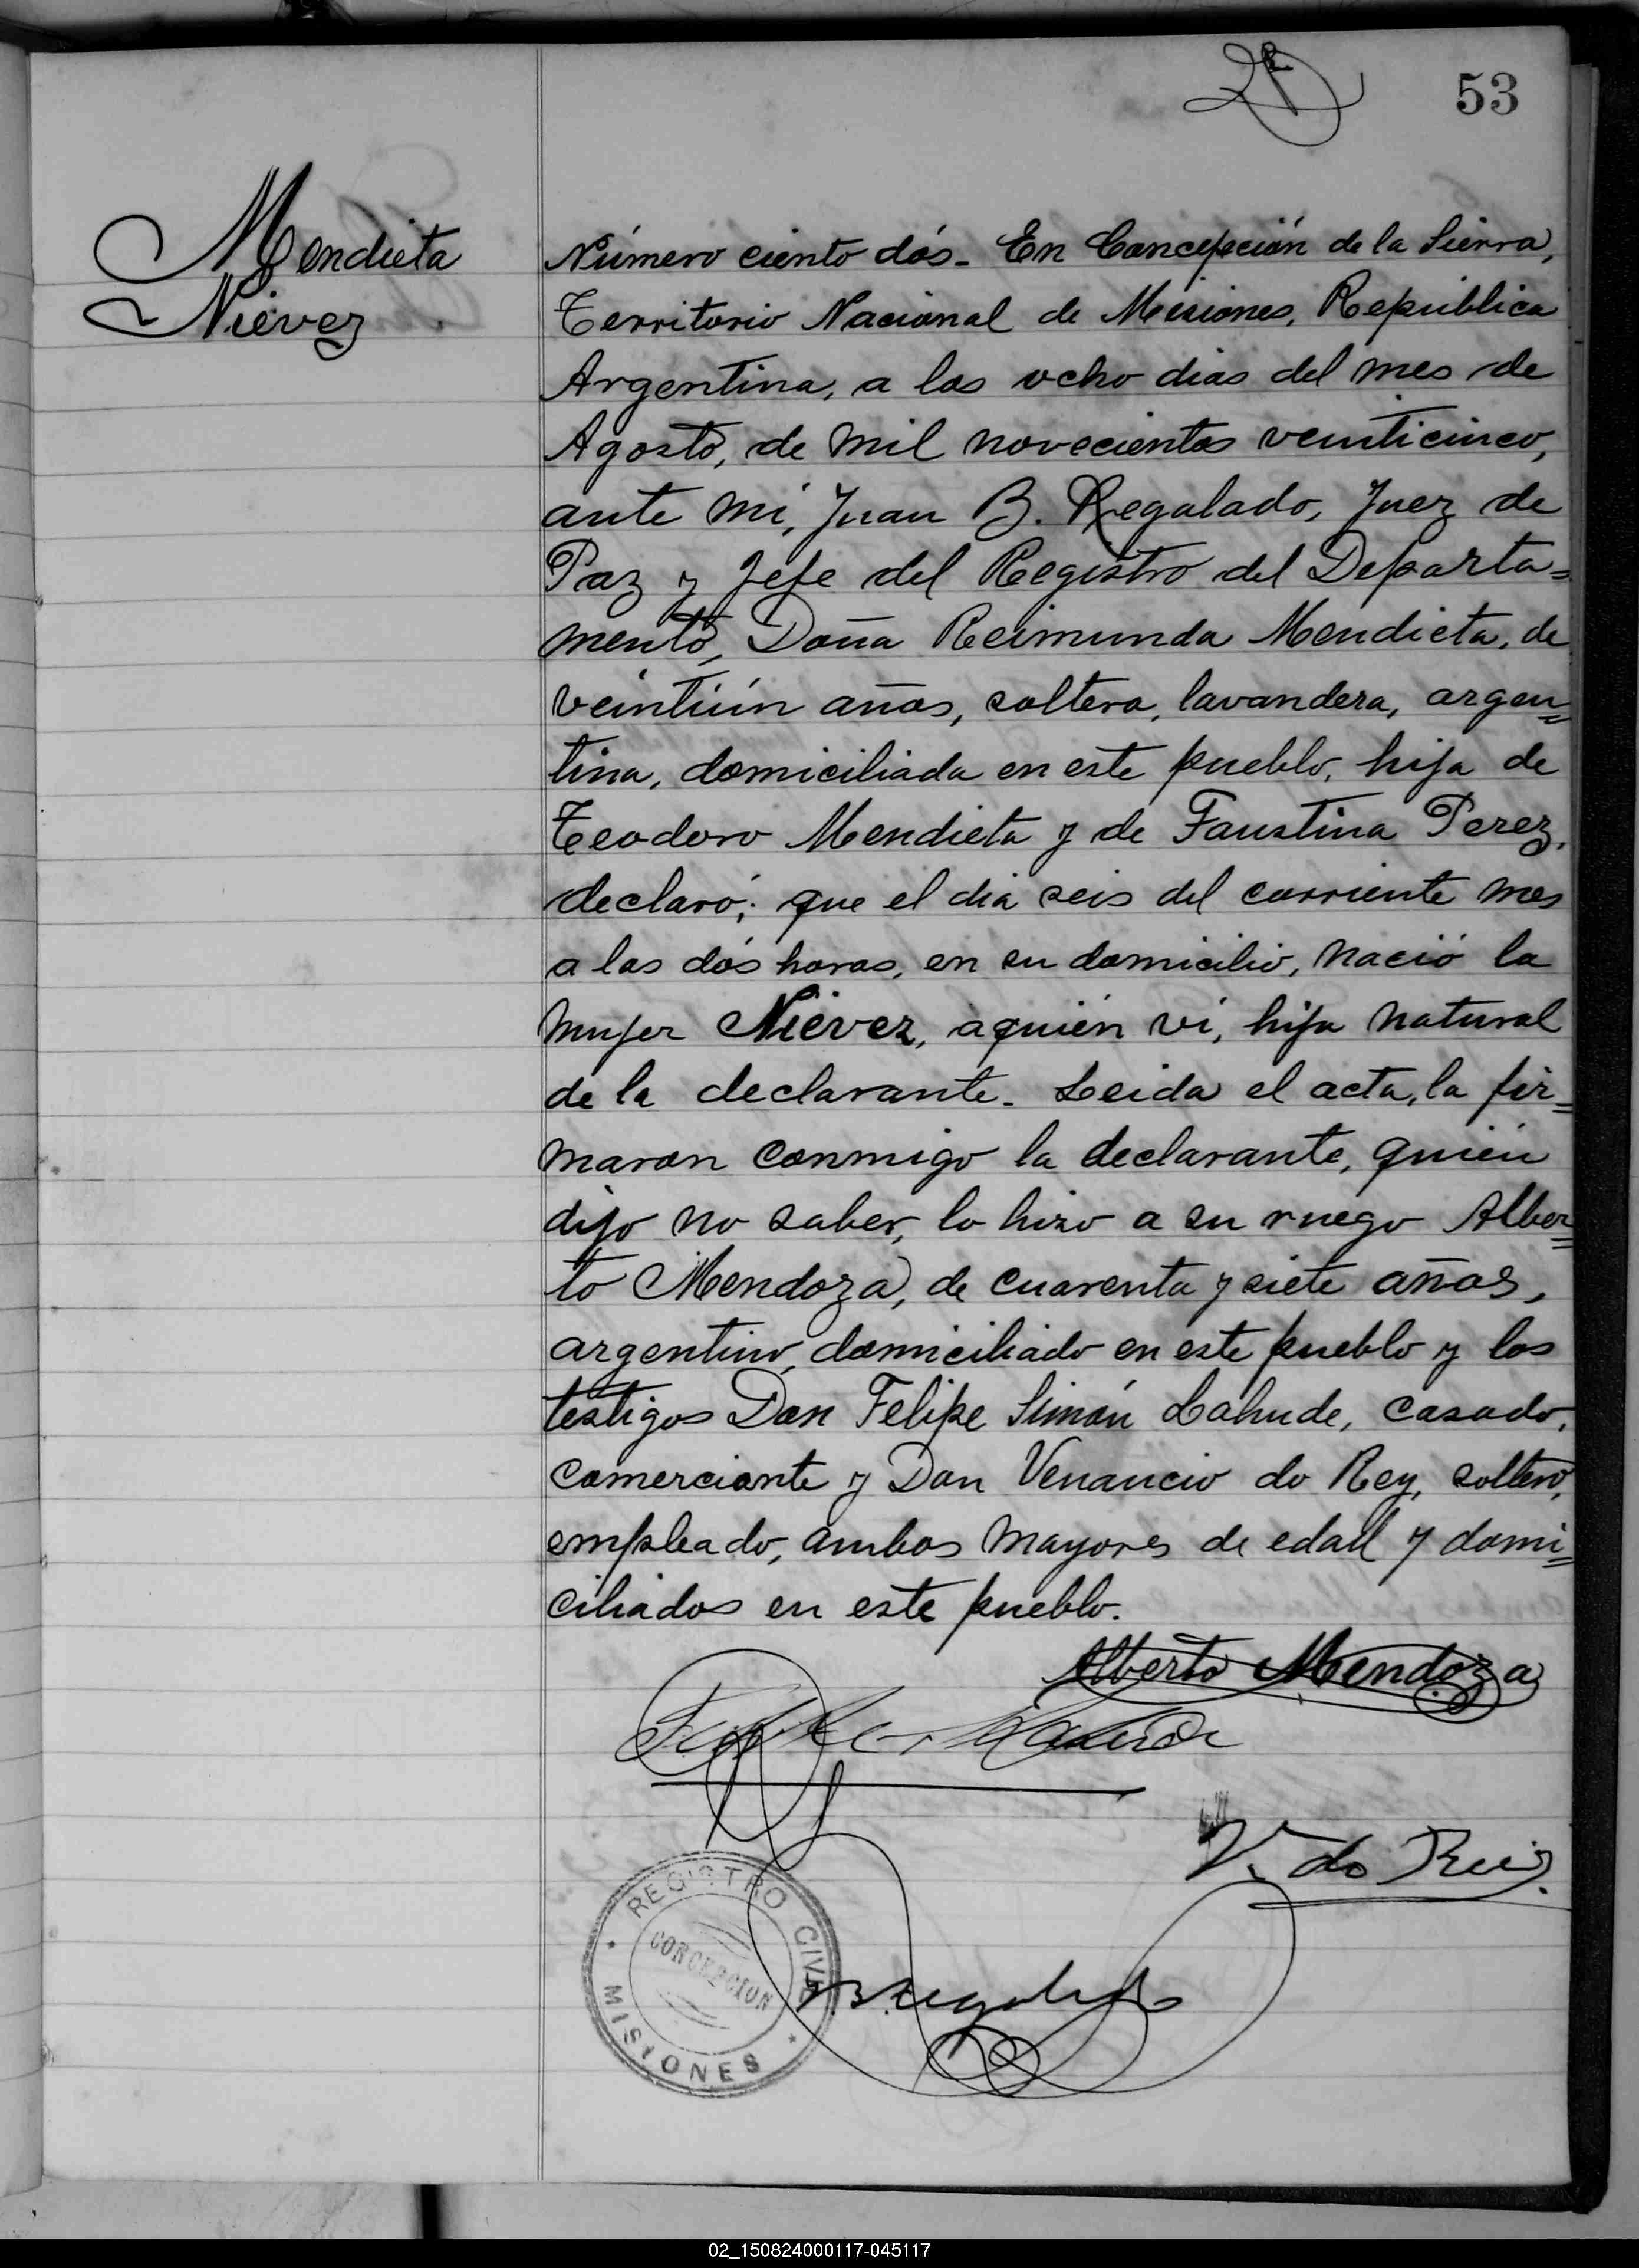 53
Mendieta
Niévez
Número ciento dós- En Concepción de la Sierra,
Territorio Nacional de Misiones, República
Argentina, a los ocho dias del mes de
Agosto, de mil novecientos veinticinco,
ante mi, Juan B. Regalado, Juez de
Paz y Jefe del Registro del Departa=
mento, Doña Reimunda Mendieta, de
veintiún años, soltera, lavandera, argen=
tina, domiciliada en este pueblo, hija de
Teodoro Mendieta y de Faustina Perez,
declaró; que el dia seis del corriente mes
a las dós horas, en su domicilio, nació la
mujer Niévez, a quién vi, hija natural
de la declarante- Leida el acta, la fir=
maron conmigo la declarante, quién
dijo no saber, lo hizo a su ruego Alber=
to Mendoza, de cuarenta y siete años,
argentino, domiciliado en este pueblo y los
testigos Don Felipe Simón Lahude, casado,
comerciante y Don Venancio do Rey, soltero,
empleado, ambos mayores de edad y domi=
ciliados en este pueblo.
Alberto Mendoza
V. do Rey
REGISTRO CIVIL
CONCEPCION
MISIONES
02_150824000117-045117